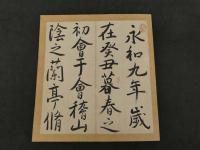 永和九年歲
在癸丑暮春之
初會于會稽山
陰之蘭亭脩